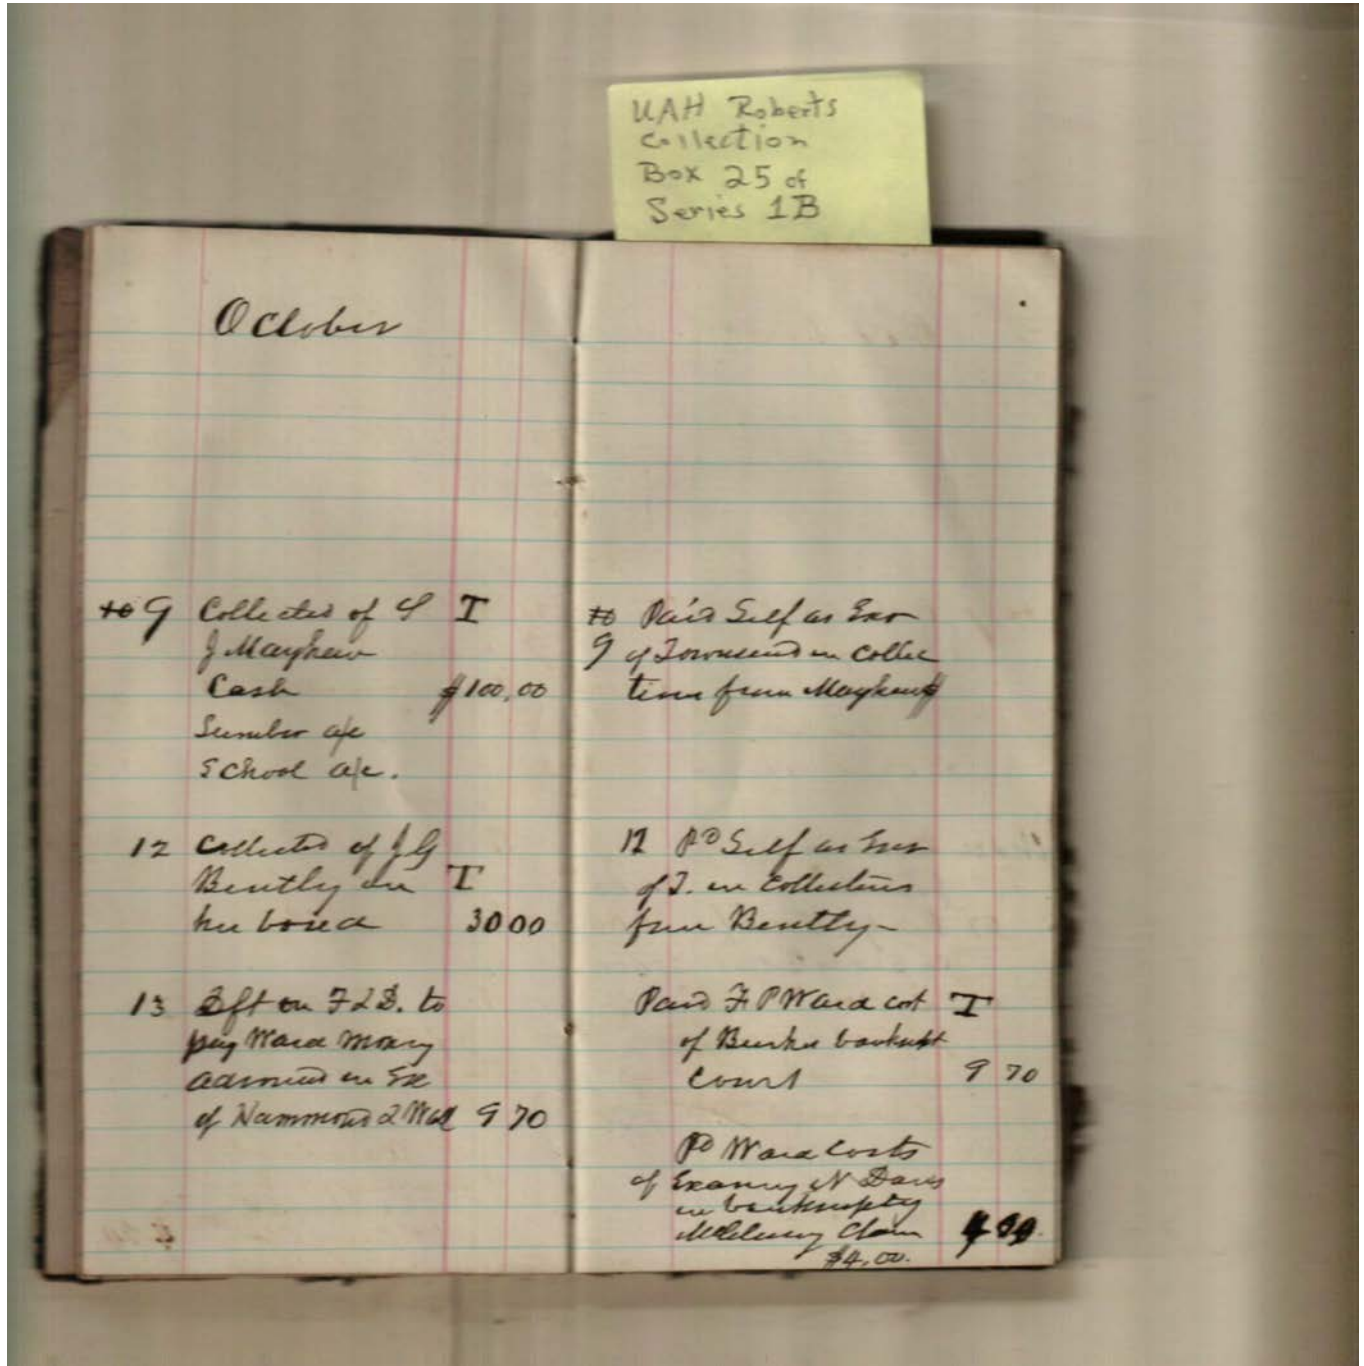 UAH Roberts
Collection
Box 25 of
Series 1B
October
9 Collected of S T
J Mayhew
Cash $100,00
Lumber a/c
School a/c.
12 Collected of J G
Bently on T
his board 3000
13 Dft on F L D. to
pay Ward money
advanced in Ex
of Hammond & Wall 9 70
10 Paid Self as Exor
9 of Townsend on Collec
tions from Mayhew $
12 Pd Self as Exor
of T. on Collections
from Bently-
Paid F P Ward cost T
of bankrupt
Court 9 70
Pd Ward Costs
of N Davis
in bankruptcy
Claim 4 00
$4.00.